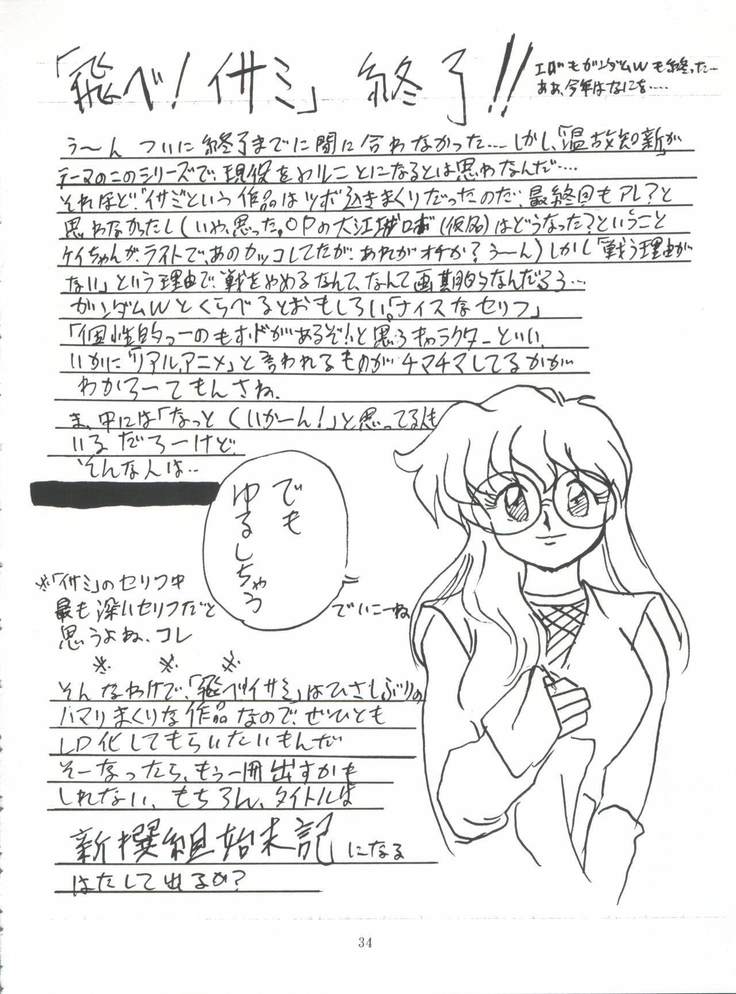 「飛べ!イサミ」終了!!
エヴァもガンダムWも終わった…
ああ、今年はなにを‥‥
う〜ん ついに終了までに間に合わなかった… しかし、「温故知新」が
テーマのこのシリーズで、現役をやルことになるとは思わなんだ…
それほど「イサミ」という作品はツボ込きまくりだったのだ、最終回もアレ?と
思わなかったし(いや、思った。OPの大江城ロボ(仮名)はどうなった?ということ
ケイちゃんが、ラストで、あのカッコしてたが、あれがオチか?う〜ん)しかし「戦う理由が
ない」という理由で、戦をやめるなんて、なんて画期的なんだろう…
ガンダムWとくらべるとおもしろい。「ナイスなセリフ」
「個性的っつーのもほどがあるぞ!」と思うキャラクターといい、
いかに「リアルアニメ」と言われるものがチマチマしてるかが
わかろーてもんさね。
ま、中には「なっとくいかーん!」と思ってる人も
いるだろーけど、
そんな人は‥
でも
ゆるしちゃう
でいこーね
※「イサミ」のセリフ中
最も深いセリフだと
思うよね、コレ
※ ※ ※
そんなわけで、「飛べイサミ」はひさしぶりの
ハマりまくりな作品なので、ぜひとも
LD化してもらいたいもんだ
そーなったら、もう一冊出すかも
しれない、もちろん、タイトルは
新撰組始末記になる
はたして出るか?
34